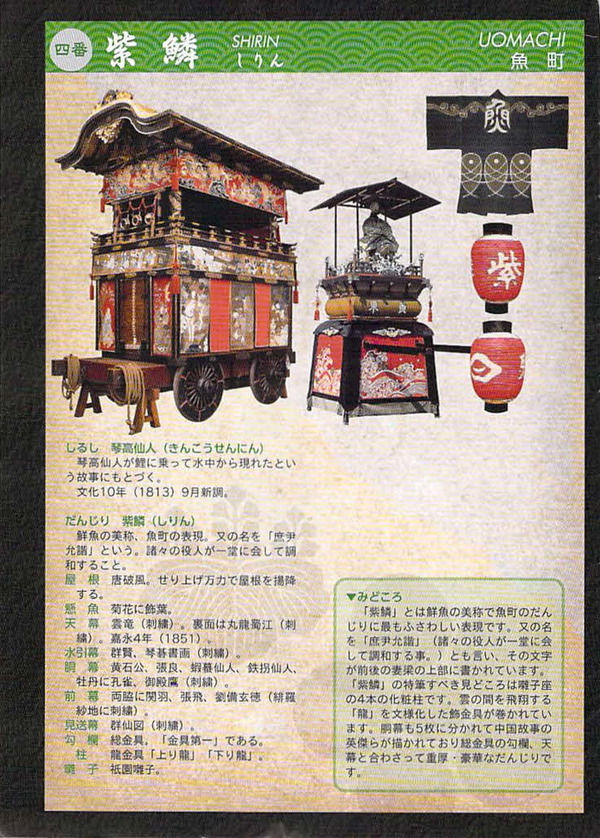 四番 紫鱗 SHIRIN しりん
UOMACHI 魚町
魚
紫
しるし 琴高仙人（きんこうせんにん）
琴高仙人が鯉に乗って水中から現れたとい
う故事にもとづく。
文化10年（1813）9月新調。
だんじり 紫鱗（しりん）
鮮魚の美称、魚町の表現。又の名を「庶尹
允諧」という。諸々の役人が一堂に会して調
和すること。
屋 根 唐破風。せり上げ万力で屋根を揚降
する。
懸 魚 菊花に飾葉。
天 幕 雲竜（刺繍）。裏面は丸龍蜀江（刺
繍）。嘉永4年（1851）。
水引幕 群賢、琴碁書画（刺繍）。
胴 幕 黄石公、張良、蝦蟇仙人、鉄拐仙人、
牡丹に孔雀、御殿鷹（刺繍）。
前 幕 両脇に関羽、張飛、劉備玄徳（緋羅
紗地に刺繍）。
見送幕 群仙図（刺繍）。
勾 欄 総金具。「金具第一」である。
柱 龍金具「上り龍」「下り龍」。
囃 子 祇園囃子。
▼みどころ
「紫鱗」とは鮮魚の美称で魚町のだん
じりに最もふさわしい表現です。又の名
を「庶尹允諧」（諸々の役人が一堂に会
して調和する事。）とも言い、その文字
が前後の妻梁の上部に書かれています。
「紫鱗」の特筆すべき見どころは囃子座
の4本の化粧柱です。雲の間を飛翔する
「龍」を文様化した飾金具が巻かれてい
ます。胴幕も5枚に分かれて中国故事の
英傑らが描かれており総金具の勾欄、天
幕と合わさって重厚・豪華なだんじりで
す。